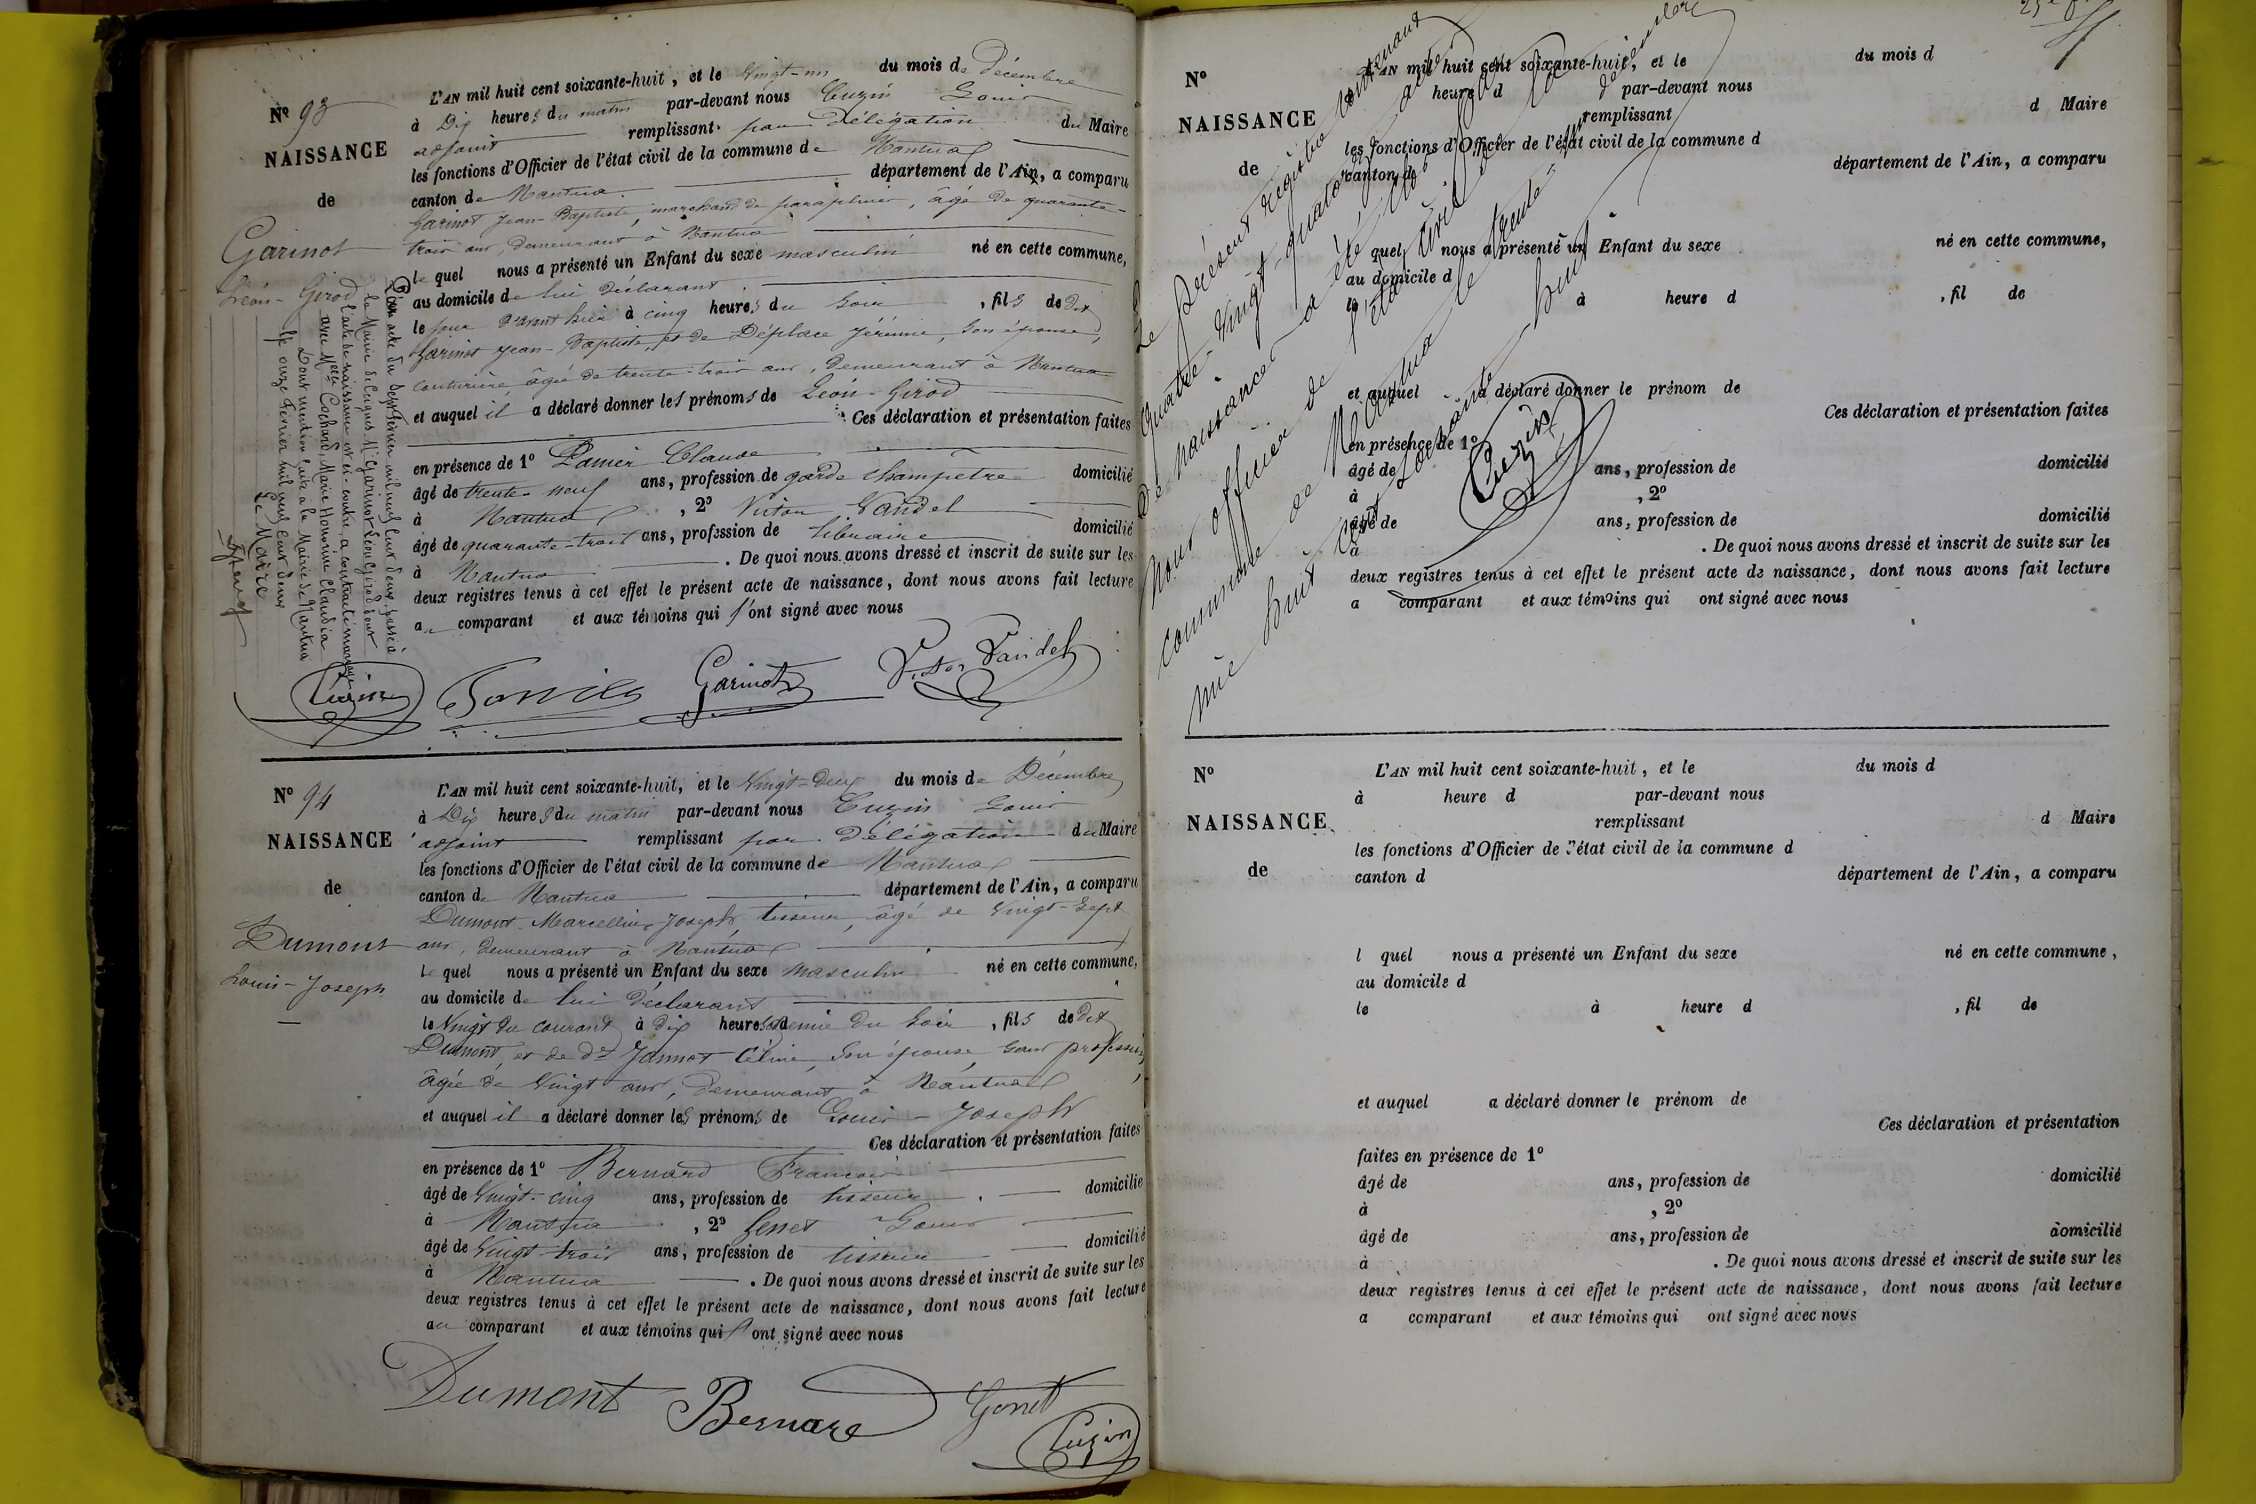 Nº 93
NAISSANCE
de
Garinot
Léon-Girod
L'AN mil huit cent soixante-huit, et le Vingt-un du mois de Décembre
à Dix heures du matin par-devant nous Cuzin Louis
adjoint remplissant par Délégation du Maire
les fonctions d'Officier de l'état civil de la commune de Nantua
canton de Nantua département de l'Ain, a comparu
Garinot Jean-Baptiste, marchand de parapluies, âgé de quarante-
trois ans, demeurant à Nantua
le quel nous a présenté un Enfant du sexe masculin né en cette commune,
au domicile de lui déclarant
le jour d'avant hier à cinq heures du soir, fils de dit
Garinot Jean-Baptiste, et de Déplace Jérémie, son épouse,
couturière âgée de trente-trois ans, demeurant à Nantua
et auquel il a déclaré donner les prénoms de Léon-Girod
Ces déclaration et présentation faites
en présence de 1º Claude
âgé de trente-neuf ans, profession de garde champêtre domicilié
à Nantua, 2º Victor Vandel
âgé de quarante-trois ans, profession de libraire domicilié
à Nantua. De quoi nous avons dressé et inscrit de suite sur les
deux registres tenus à cet effet le présent acte de naissance, dont nous avons fait lecture
au comparant et aux témoins qui l'ont signé avec nous
Par acte du sept février mil neuf cent deux, passé à
la Mairie de Mr Garinot Léon Girod dont
l'acte de naissance est ci-contre, a contracté mariage
avec Melle Cochard, Marie Honorine Claudia
Dont mention faite à la Mairie de Nantua
le onze février mil neuf cent deux
Le Maire
Cuzin Garinot Vandel
Nº 94
NAISSANCE
de
Dumont
Louis-Joseph
L'AN mil huit cent soixante-huit, et le Vingt-Deux du mois de Décembre
à Dix heures du matin par-devant nous Cuzin Louis
adjoint remplissant par Délégation du Maire
les fonctions d'Officier de l'état civil de la commune de Nantua
canton de Nantua département de l'Ain, a comparu
Dumont Marcellin Joseph, tisseur, âgé de Vingt-Sept
ans, demeurant à Nantua
le quel nous a présenté un Enfant du sexe masculin né en cette commune,
au domicile de lui déclarant
le Vingt du courant à dix heures & demie du soir, fils de dit
Dumont et de de Jannot Céline, son épouse, sans profession,
âgée de Vingt ans, demeurant à Nantua
et auquel il a déclaré donner les prénoms de Louis-Joseph
Ces déclaration et présentation faites
en présence de 1º Bernard François
âgé de Vingt-cinq ans, profession de tisseur domicilié
à Nantua, 2º Genet Louis
âgé de Vingt-trois ans, profession de tisseur domicilié
à Nantua. De quoi nous avons dressé et inscrit de suite sur les
deux registres tenus à cet effet le présent acte de naissance, dont nous avons fait lecture
au comparant et aux témoins qui l'ont signé avec nous
Dumont Bernard Genet
Cuzin
Nº
NAISSANCE
de
L'AN mil huit cent soixante-huit, et le du mois d
heure d par-devant nous
remplissant d Maire
les fonctions d'Officier de l'état civil de la commune d
canton d département de l'Ain, a comparu
quel nous a présenté un Enfant du sexe né en cette commune,
au domicile d
le à heure d, fil de
et auquel a déclaré donner le prénom de
Ces déclaration et présentation faites
en présence de 1º
âgé de ans, profession de domicilié
à, 2º
âgé de ans, profession de domicilié
à. De quoi nous avons dressé et inscrit de suite sur les
deux registres tenus à cet effet le présent acte de naissance, dont nous avons fait lecture
a comparant et aux témoins qui ont signé avec nous
Le présent registre contenant
quatre-vingt-quatorze actes
de naissances a été clos par
nous officier de l'état civil de la
commune de Nantua le trente un décembre
mil huit cent soixante huit
Cuzin
Nº
NAISSANCE
de
L'AN mil huit cent soixante-huit, et le du mois d
à heure d par-devant nous
remplissant d Maire
les fonctions d'Officier de l'état civil de la commune d
canton d département de l'Ain, a comparu
l quel nous a présenté un Enfant du sexe né en cette commune,
au domicile d
le à heure d, fil de
et auquel a déclaré donner le prénom de
Ces déclaration et présentation
faites en présence de 1º
âgé de ans, profession de domicilié
à, 2º
âgé de ans, profession de domicilié
à. De quoi nous avons dressé et inscrit de suite sur les
deux registres tenus à cet effet le présent acte de naissance, dont nous avons fait lecture
a comparant et aux témoins qui ont signé avec nous